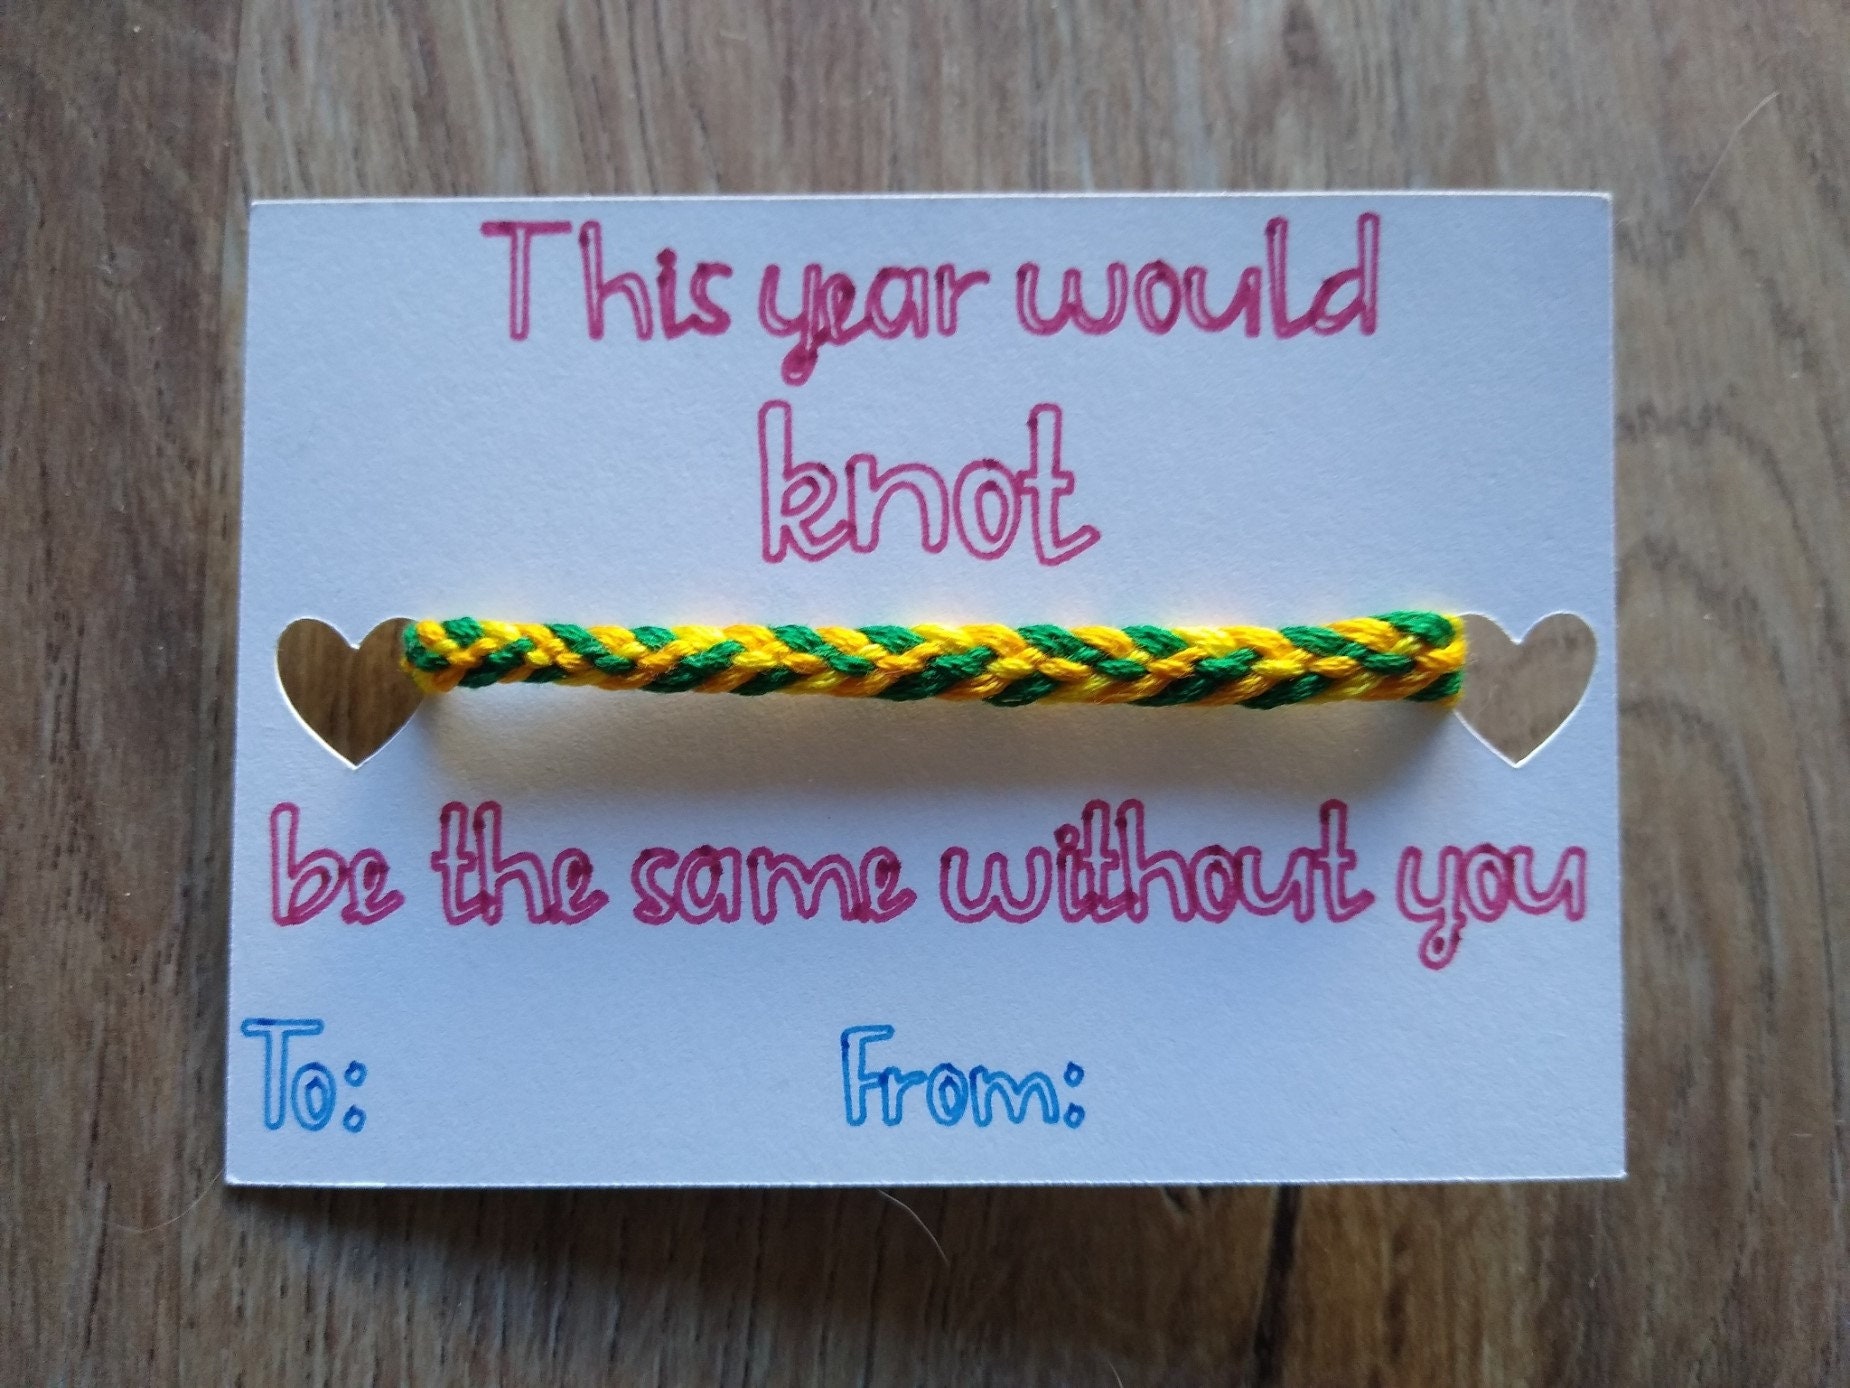 This year would
knot
be the same without you
To: From: